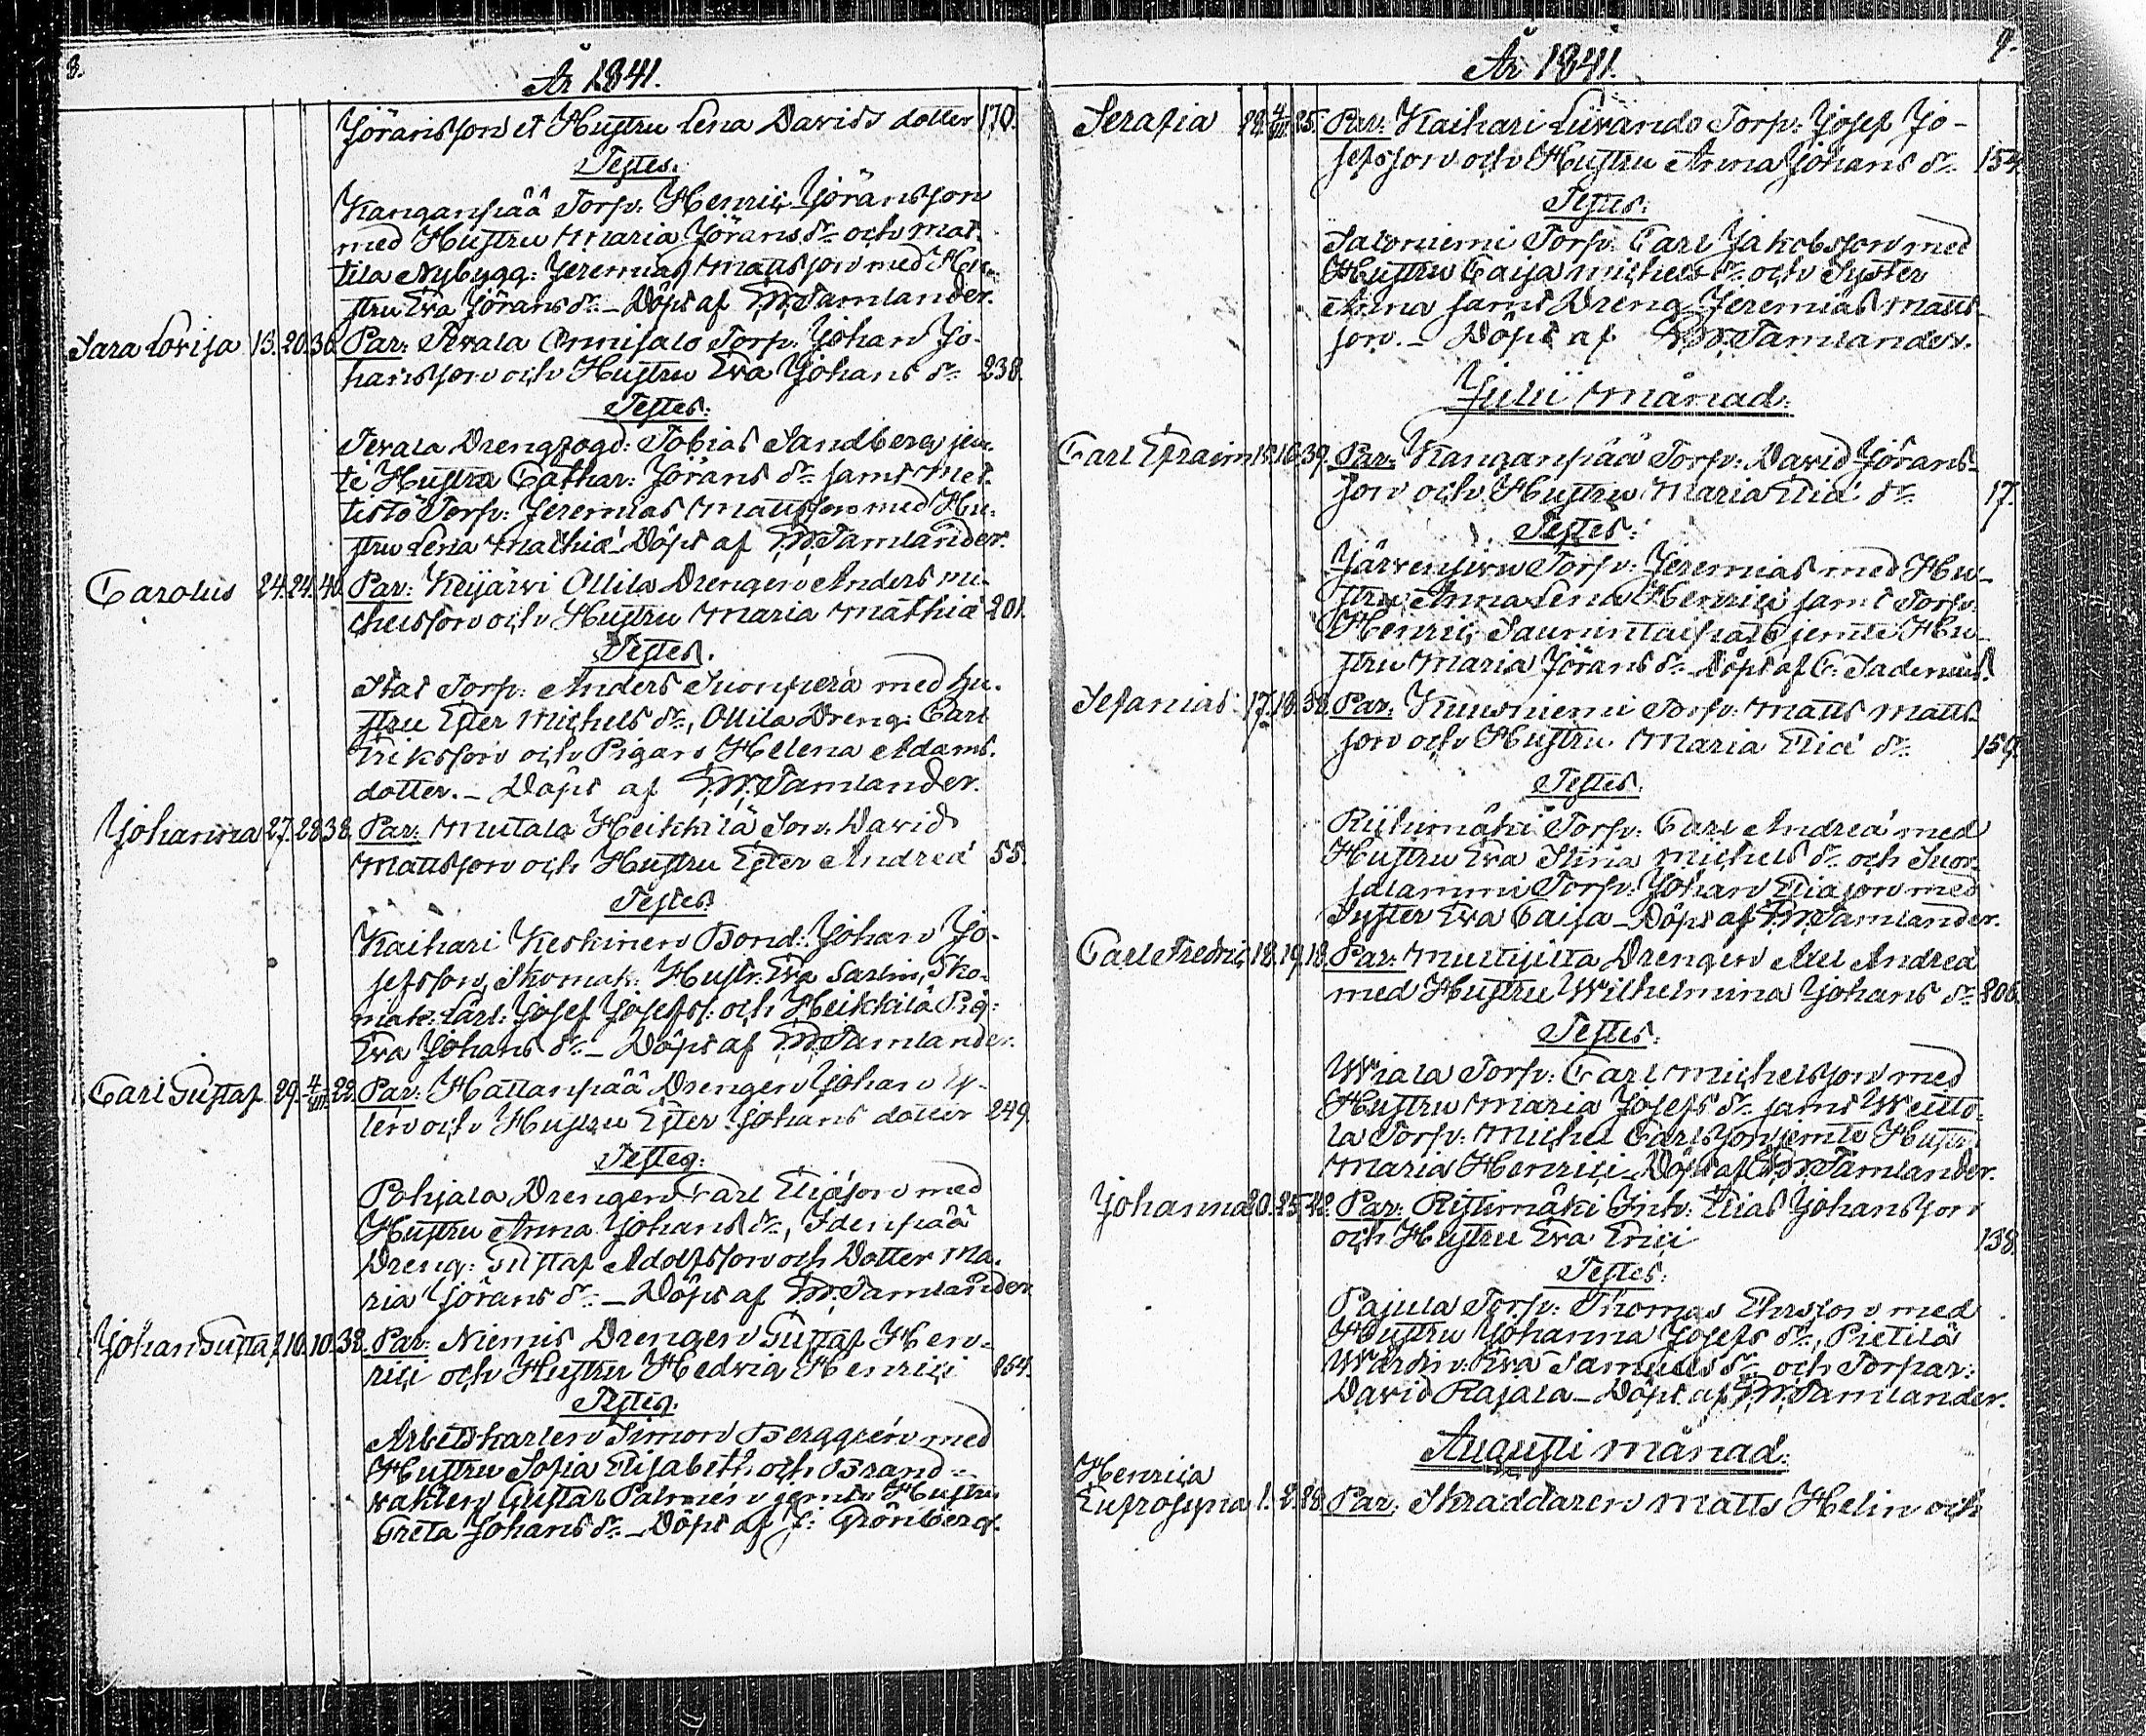 8.
År 1841.
Jöransson et Hustru Lena Davids dotter 170.
Testes.
Kanganpää Torp: Henric Jöransson
med Hustru Maria Jörans dr och Mat-
tila Nybygg: Jeremias Mattsson med Hu-
stru Eva Jörans dr – Döpt af F.W. Tamlander.
Sara Lovisa 13. 20. 36. Par: Sevala Onnisalo Torp: Johan Jo-
hansson och Hustru Eva Johans dr 238.
Testes:
Sevala Drengfogd: Tobias Sandberg jem-
te Hustru Cathar: Jörans dr samt Met-
tistö Torp: Jeremias Mattsson med Hu-
stru Lena Mathiæ – Döpt af F.W. Tamlander.
Carolus 24. 24. 40. Par: Keijärvi Ollila Drengen Anders Mi-
chelsson och Hustru Maria Mathiæ 201.
Testes.
Stat Torp: Anders Suonperä med hu-
stru Ester Michels dr, Ollila Dreng: Carl
Eriksson och Pigan Helena Adams-
dotter. – Döpt af F.W. Tamlander.
Johanna 27. 28 38. Par: Mutala Heikkilä Son: David
Mattsson och Hustru Ester Andreæ 55.
Testes.
Kaihari Keskinen Bond: Johan Jo-
sefsson, Skomak: Hustr: Eva Sarlin, Sko-
mak: Lärl: Josef Josefss: och Heikkilä Pig:
Eva Johans dr – Döpt af F.W. Tamlander.
Carl Gustaf 29. 4/VII. 22. Par: Hattanpää Drengen Johan
och Hustru Ester Johans dotter 249.
Testes:
Pohjala Drengen Carl Eliæson med
Hustru Anna Johans dr, Idenpää
Dreng: Gustaf Adolfsson och Dotter Ma-
ria Jörans dr – Döpt af F.W. Tamlander.
Johan Gustaf 10. 10. 38. Par: Niemis Drengen Gustaf Hen-
rici och Hustru Hedvig Henrici 264.
Testes.
Arbetskarlen Simon Berggrén med
Hustru Sofia Elisabeth och Brand-
vakten Gustaf Palmén jemte Hustru
Greta Johans dr – Döpt af J: Grönberg.
9.
År 1841.
Serafia 22. 4/VII. 25. Par: Kaihari Liivando Torp: Josef Jo-
sefsson och Hustru Anna Johans dr 154.
Testes:
Saloniemi Torp: Carl Jakobsson med
Hustru Caisa Michels dr och Syster
Anna samt Dreng Jeremias Matts-
son. – Döpt af F.W. Tamlander.
Julii Månad.
Carl Efraim 15. 16. 39. Par: Kanganpää Torp: David Jörans-
son och Hustru Maria Eliæ dr 17.
Testes:
Järvensivu Torp: Jeremias med Hu-
stru Anna Lena Henrici samt Torp:
Henric jemte Hu-
stru Maria Jörans dr – Döpt af C: Sadenius.
Sefanias 17. 18. 38. Par: Kuusniemi Torp: Matts Matts-
son och Hustru Maria Eliæ dr 159.
Testes.
Riihimäki Torp: Carl Andreæ med
Hustru Eva Stina Michels dr och Suon-
salammi Torp: Johan Eliæson med
Syster Eva Caisa – Döpt af F.W. Tamlander.
Carl Fredric 18. 19. 18. Par: Multisilta Drengen Axel Andreæ
med Hustru Wilhelmina Johans dr 206.
Testes:
Wiala Torp: Carl Michelsson med
Hustru Maria Josefs dr samt Weitto-
la Torp: Michel Carlsson jemte Hustru
Maria Henrici – Döpt af F.W. Tamlander.
Johanna 20. 25. 42. Par: Riihimäki Inh: Elias Johansson
och Hustru Eva Erici 138.
Testes:
Pajula Torp: Thomas Ehrsson med
Hustru Johanna Josefs dr, Pietilä
Wärdin: Eva Samuels dr och Torpar:
David Rajala – Döpt af F.W. Tamlander.
Augusti månad:
Henrica
Eufrosyna 1. 2. 28. Par: Skräddaren Matts Helin och